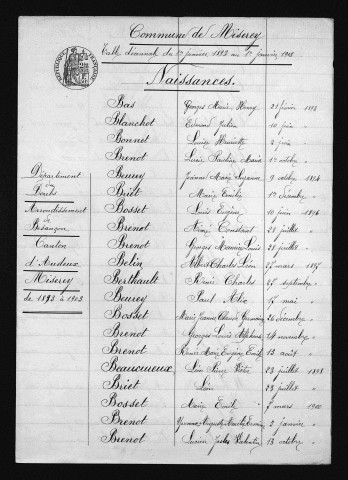 Commune de Miserey
Table décennale du 1er janvier 1893 au 1er janvier 1903
Naissances.
Département
du
Doubs
Arrondissement de
Besançon
Canton
d'Audeux
Miserey
de 1893 à 1903
Bas Georges Marie Henry 21 1893
Blanchot Edmond Julien 10 juin "
Bonnet Louise Henriette 2 juin "
Brenot Marie 1er octobre "
Beurey Jeanne Marie Suzanne 9 octobre 1894
Briet Marie Emilie 1er décembre "
Bosset Louis Eugène 10 juin 1896
Brenot Rémi Constant 21 juillet "
Brenot Georges Maurice Louis 28 juillet "
Belin Albert Charles Léon 27 mars 1897
Berthault Rénié Charles 27 septembre "
Beurey Paul Alix 17 mai "
Bosset Marie Jeanne Germaine 26 décembre "
Brenot Georges Louis Alphonse 24 novembre "
Brenot Marie Eugène Emile 13 août "
Beausoureux Léon 23 juillet 1898
Briet Léon 23 juillet "
Bosset Marie Emile 7 mars 1900
Brenot Yvonne Auguste 2 janvier "
Brenot Lucien Jules Valentin 13 octobre "